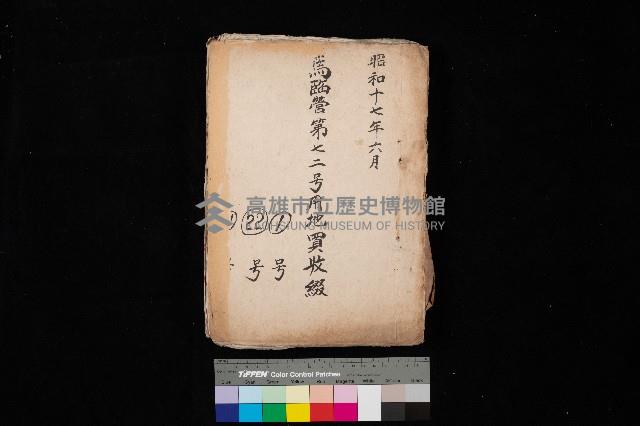 昭和十七年六月
馬臨營第七二号用地買收綴
①号
㉒号
高雄市立歷史博物館
KAOHSIUNG MUSEUM OF HISTORY
TIFFEN Color Control Patches
Blue Cyan Green Yellow Red Magenta White Black